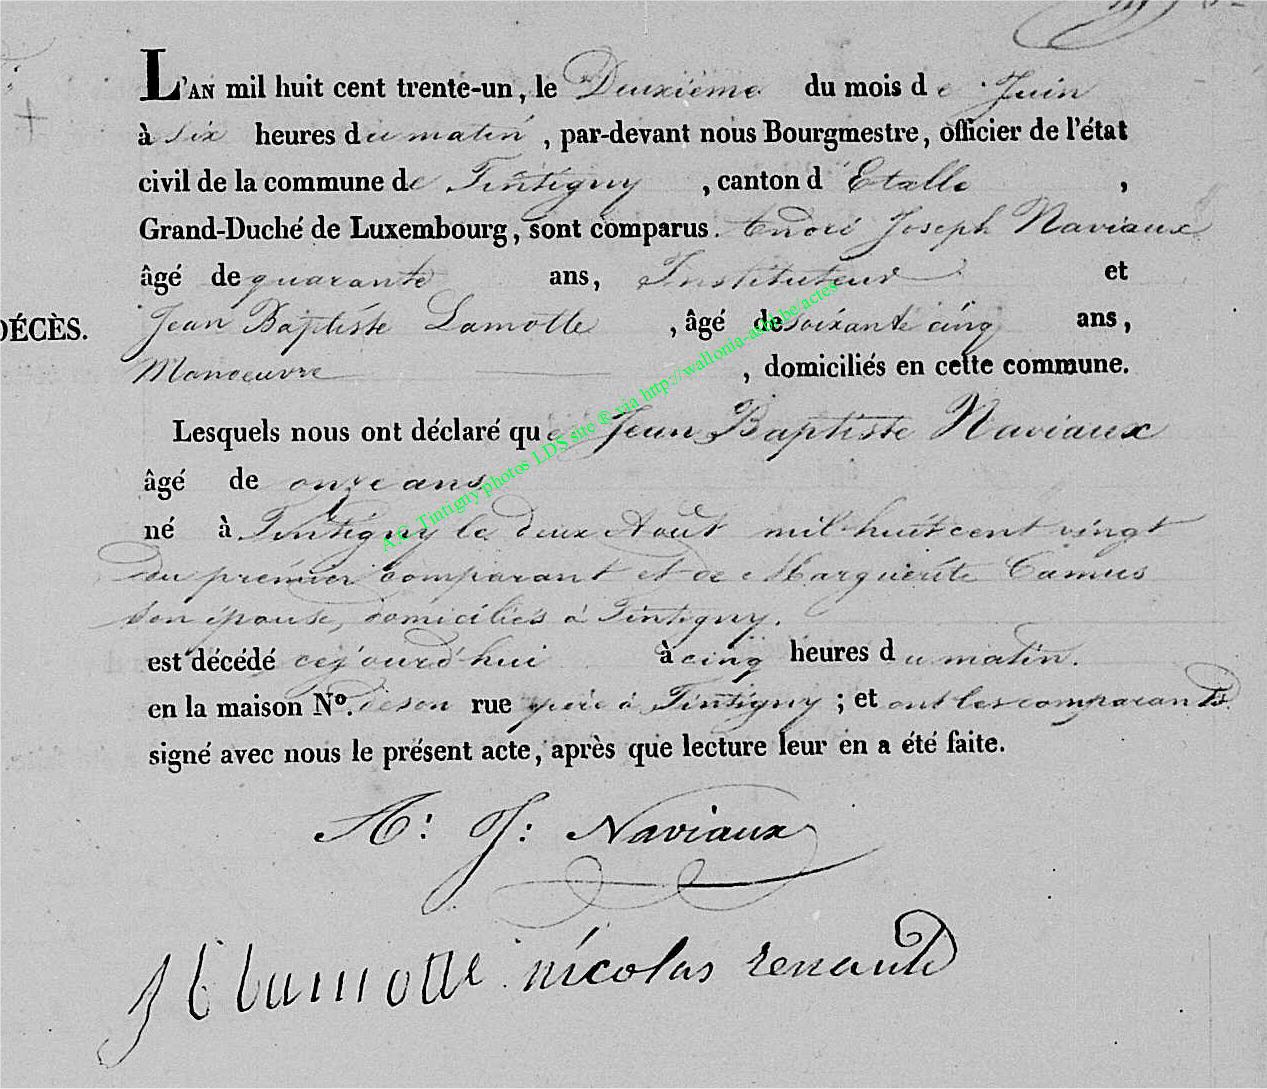 L'AN mil huit cent trente-un, le Deuxième du mois de Juin
à six heures du matin, par-devant nous Bourgmestre, officier de l'état
civil de la commune de Tintigny, canton d'Etalle,
Grand-Duché de Luxembourg, sont comparus. André Joseph Naviaux
âgé de quarante ans, Instituteur et
DÉCÈS. Jean Baptiste Lamotte, âgé de soixante cinq ans,
Manoeuvre, domiciliés en cette commune.
Lesquels nous ont déclaré que Jean Baptiste Naviaux
âgé de onze ans
né à Tintigny le deux Août mil huit cent vingt
du premier comparant et de Marguerite Camus
son épouse, domiciliés à Tintigny.
est décédé cejourd'hui à cinq heures du matin.
en la maison Nº. de son rue père à Tintigny; et ont les comparants
signé avec nous le présent acte, après que lecture leur en a été faite.
A: J: Naviaux
J b lamotte nicolas renauld
A.C. Tintigny photos LDS site ® via http://wallonia-asbl.be actes